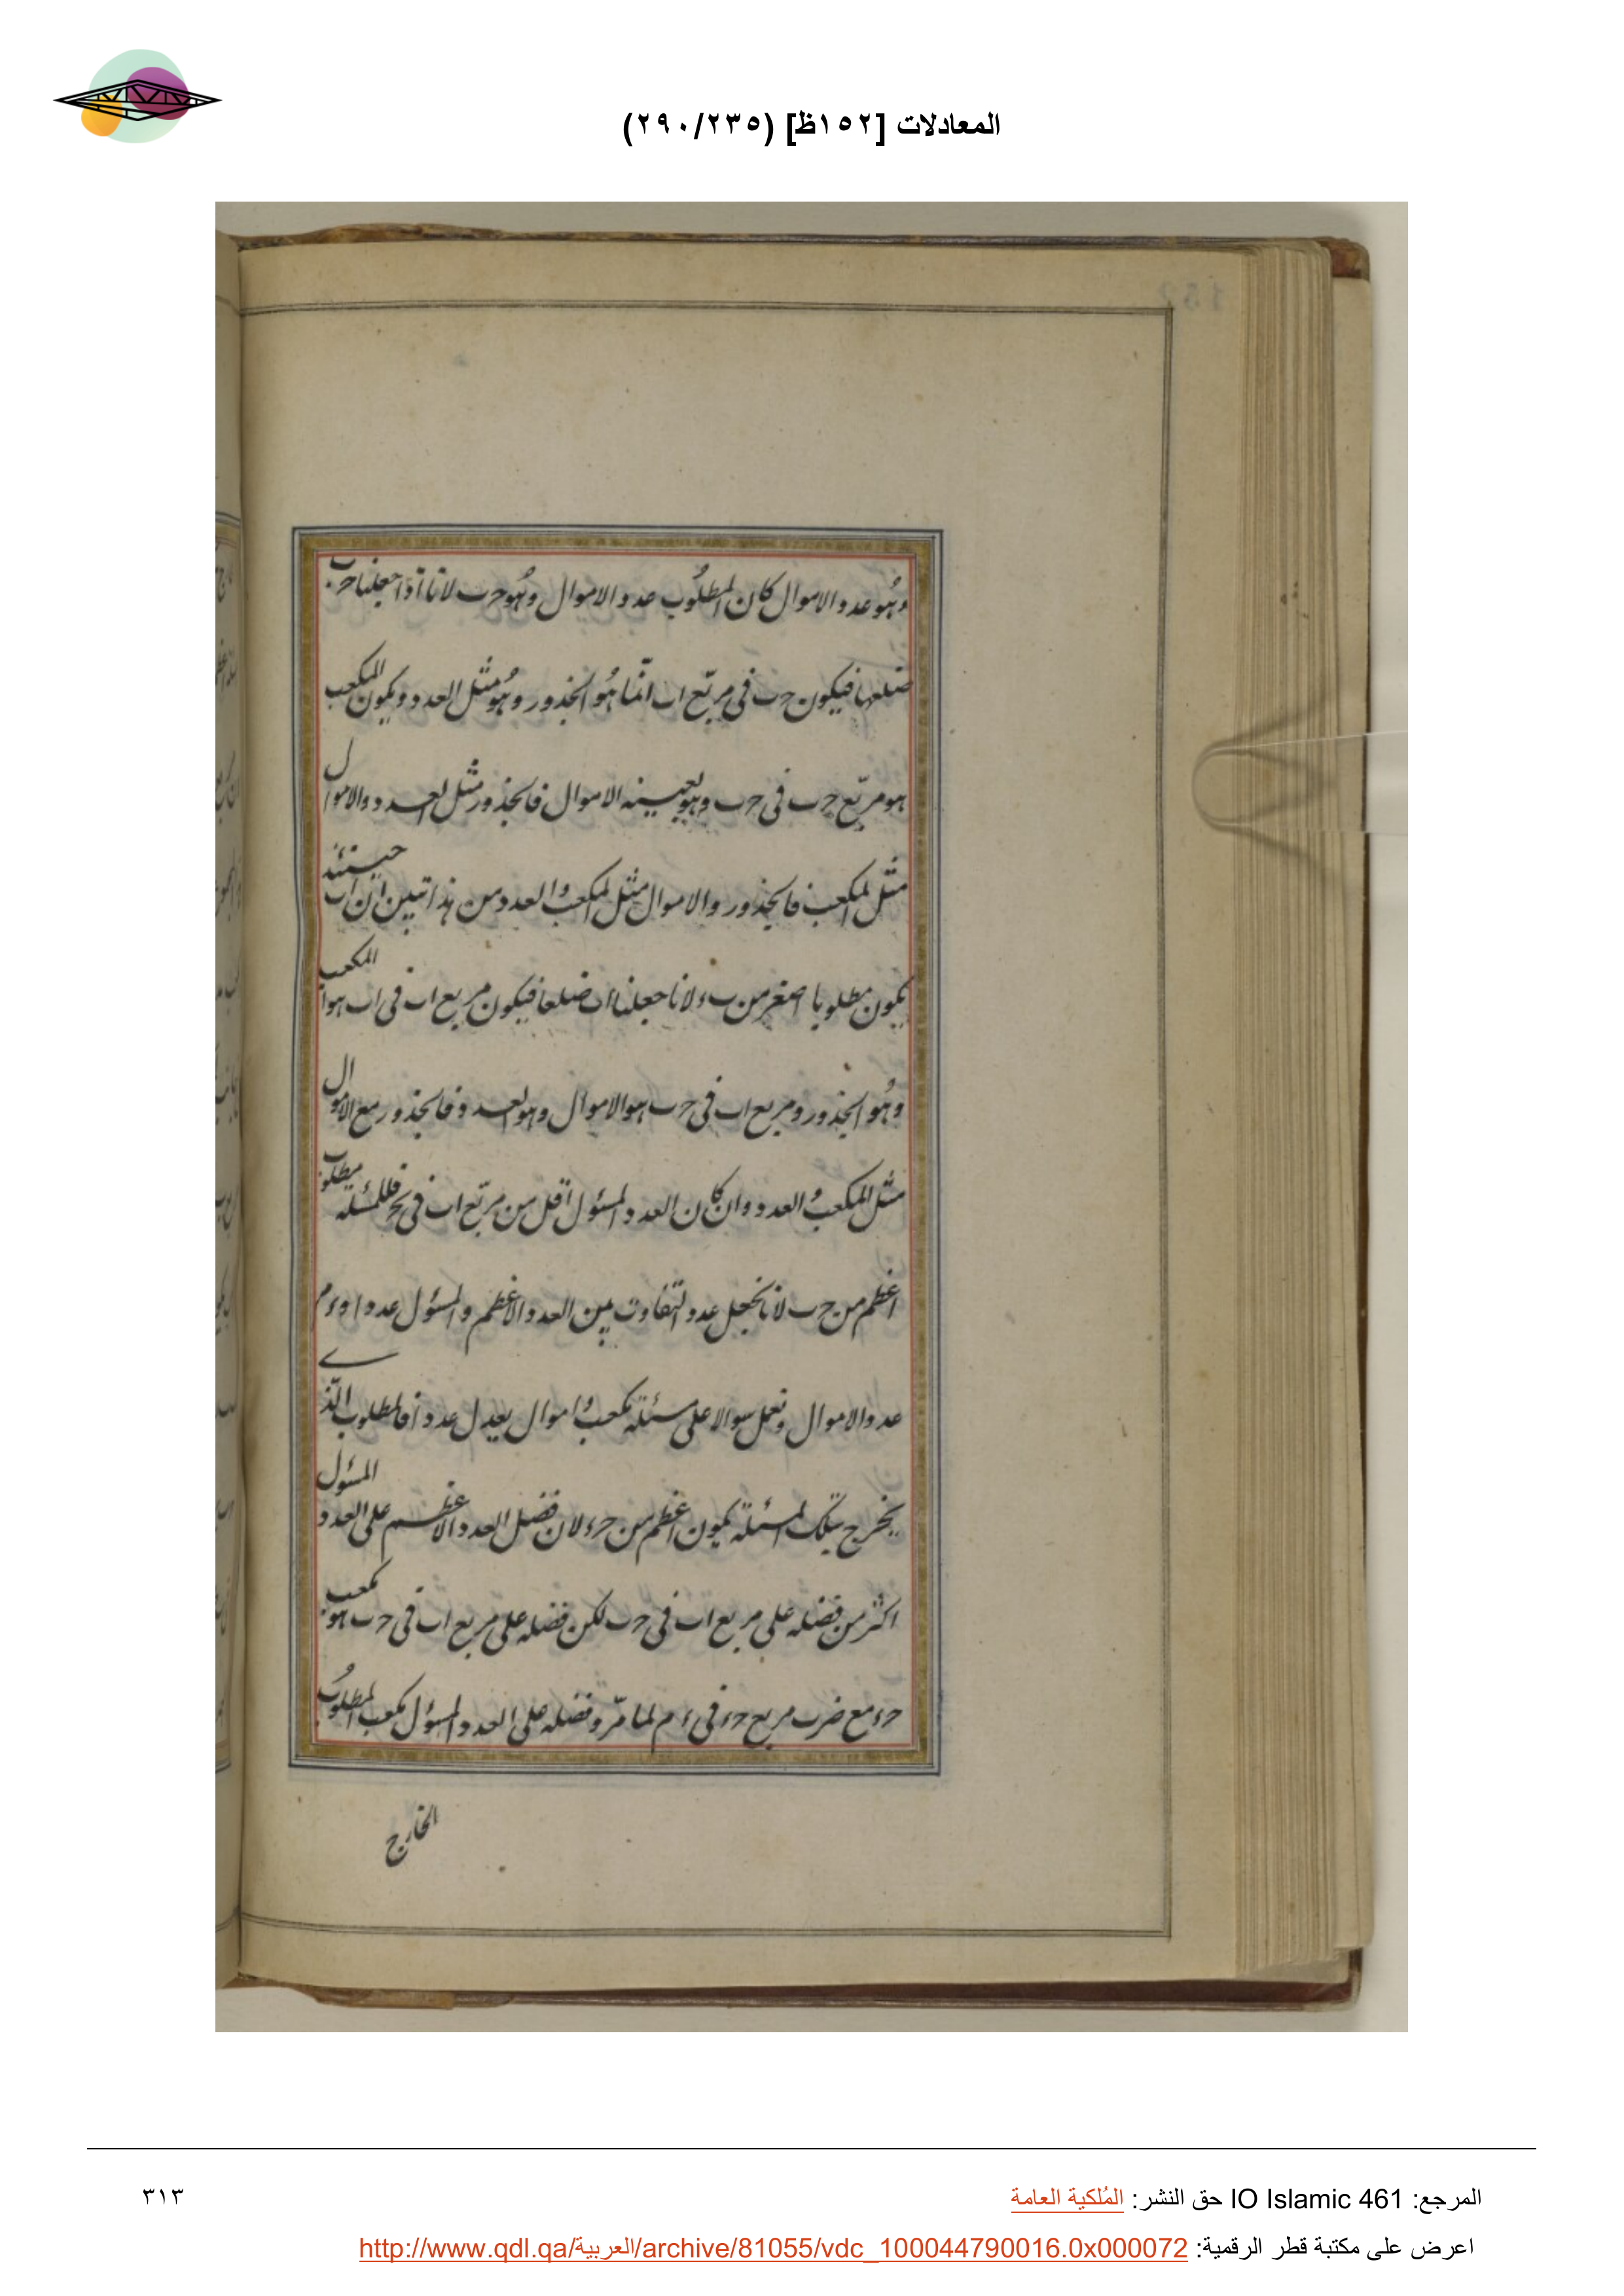 المعادلات [١٥٢ظ] (٢٩٠/٢٣٥)
وهو عدد الاموال كان المطلوب عدد الاموال وهو حب لانا اذا جعلنا حب
ضلعها فيكون حب فى مربّع اب انّما هو الجذور وهو مثل العدد ويكون المكعب
هو مربّع حب فى حب وهو بعينه الاموال فالجذور مثل العدد والاموال
مثل المكعب فالجذور والاموال مثل المكعب والعدد من هذا تبين ان اب حينئذ
يكون مطلوبا اصغر من بء لانا جعلنا اب ضلعا فيكون مربع اب فى اب هو المكعب
وهو الجذور ومربع اب فى حب هو الاموال وهو العدد فالجذور مع الاموال
مثل المكعب والعدد وان كان العدد المسئول اقل من مربّع اب فى بح فللمسئلة مطلوب
اعظم من حب لانا نجعل عدد التفاوت بين العدد الاعظم والمسئول عددا وءم
عدد الاموال ونعمل سوالا على مسئلة مكعب واموال يعدل عددا فالمطلوب الّذى
يخرج بتلك المسئلة يكون اعظم من حء لان فضل العدد الاعظم على العدد المسئول
اكثر من فضله على مربع اب فى حب لكن فضله على مربع اب فى حب هو مكعب
حء مع ضرب مربع حء فى ءم لما مرّ وفضله على العدد المسئول مكعب المطلوب
الخارج
المرجع: IO Islamic 461 حق النشر: المُلكية العامة
٣١٣
اعرض على مكتبة قطر الرقمية: http://www.qdl.qa/العربية/archive/81055/vdc_100044790016.0x000072